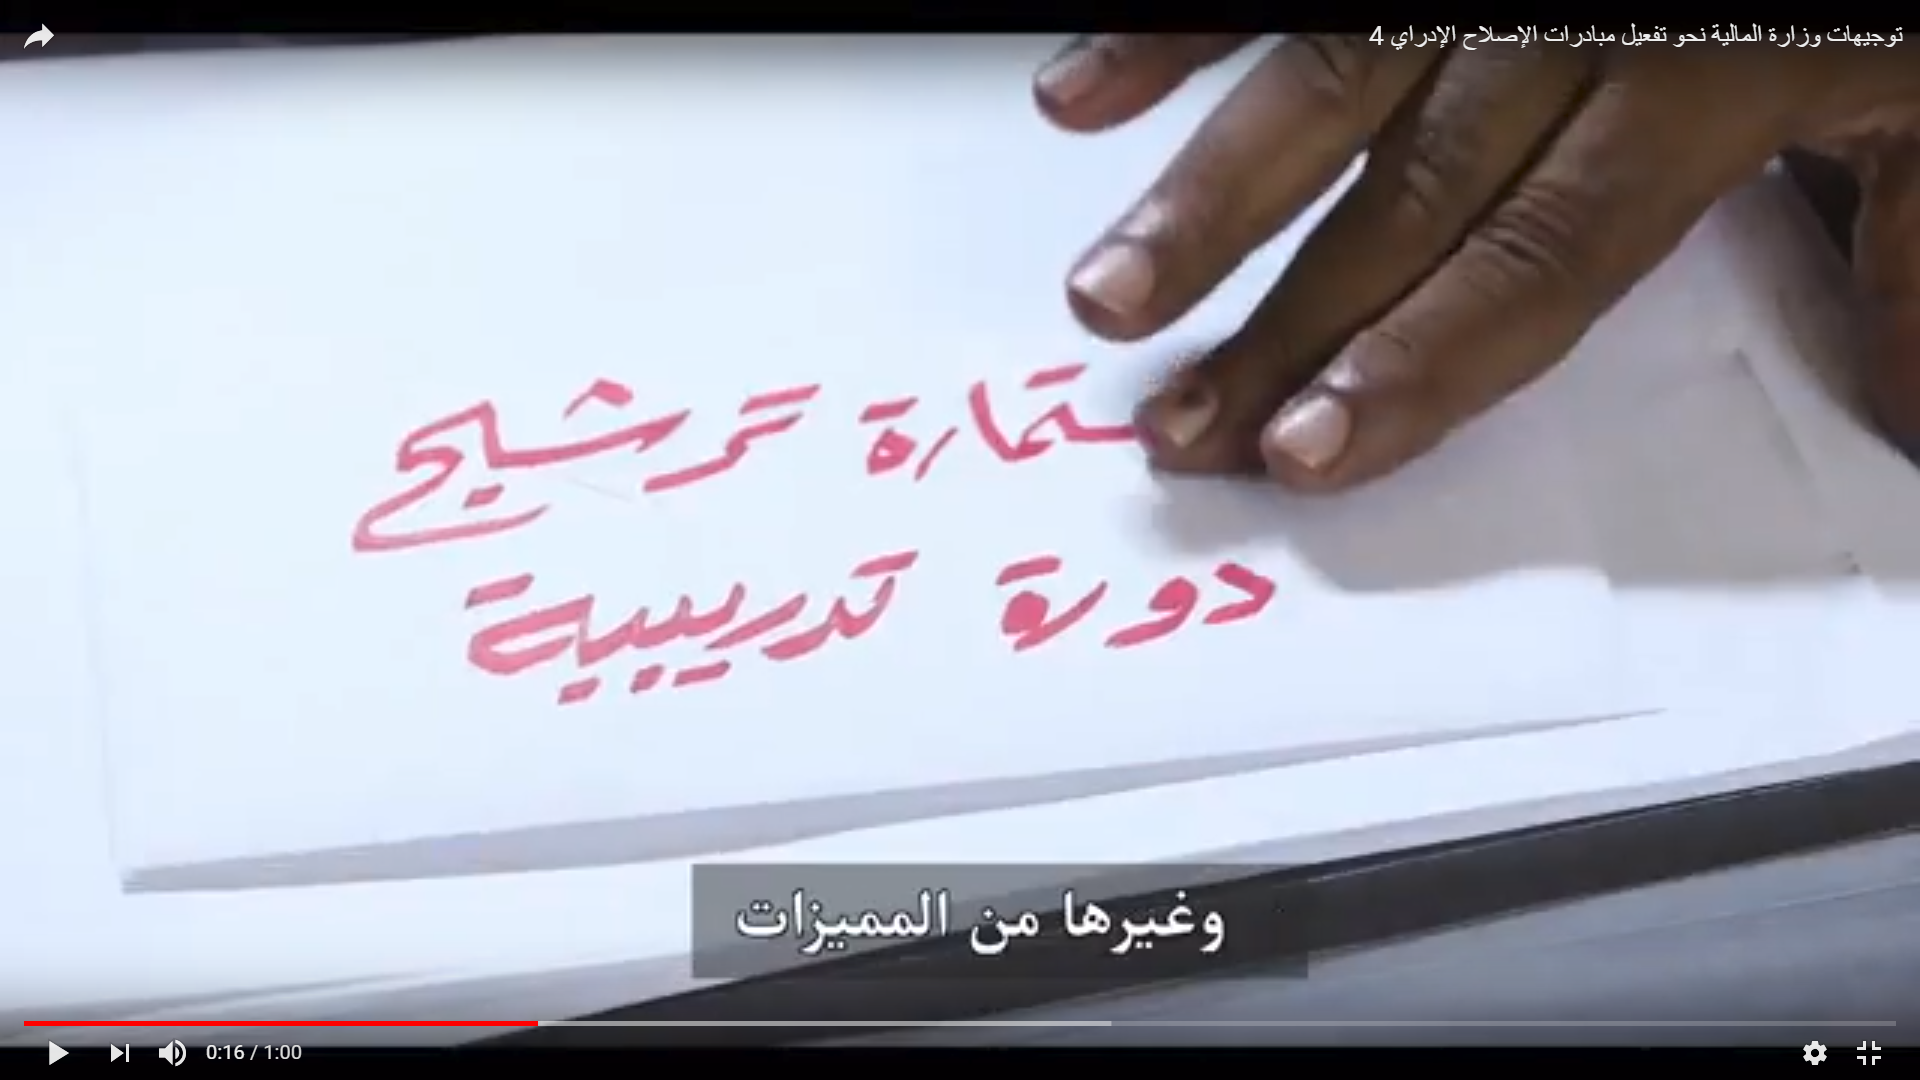 توجيهات وزارة المالية نحو تفعيل مبادرات الإصلاح الإدراي 4
ستمارة ترشيح
دورة تدريبية
وغيرها من المميزات
0:16 / 1:00